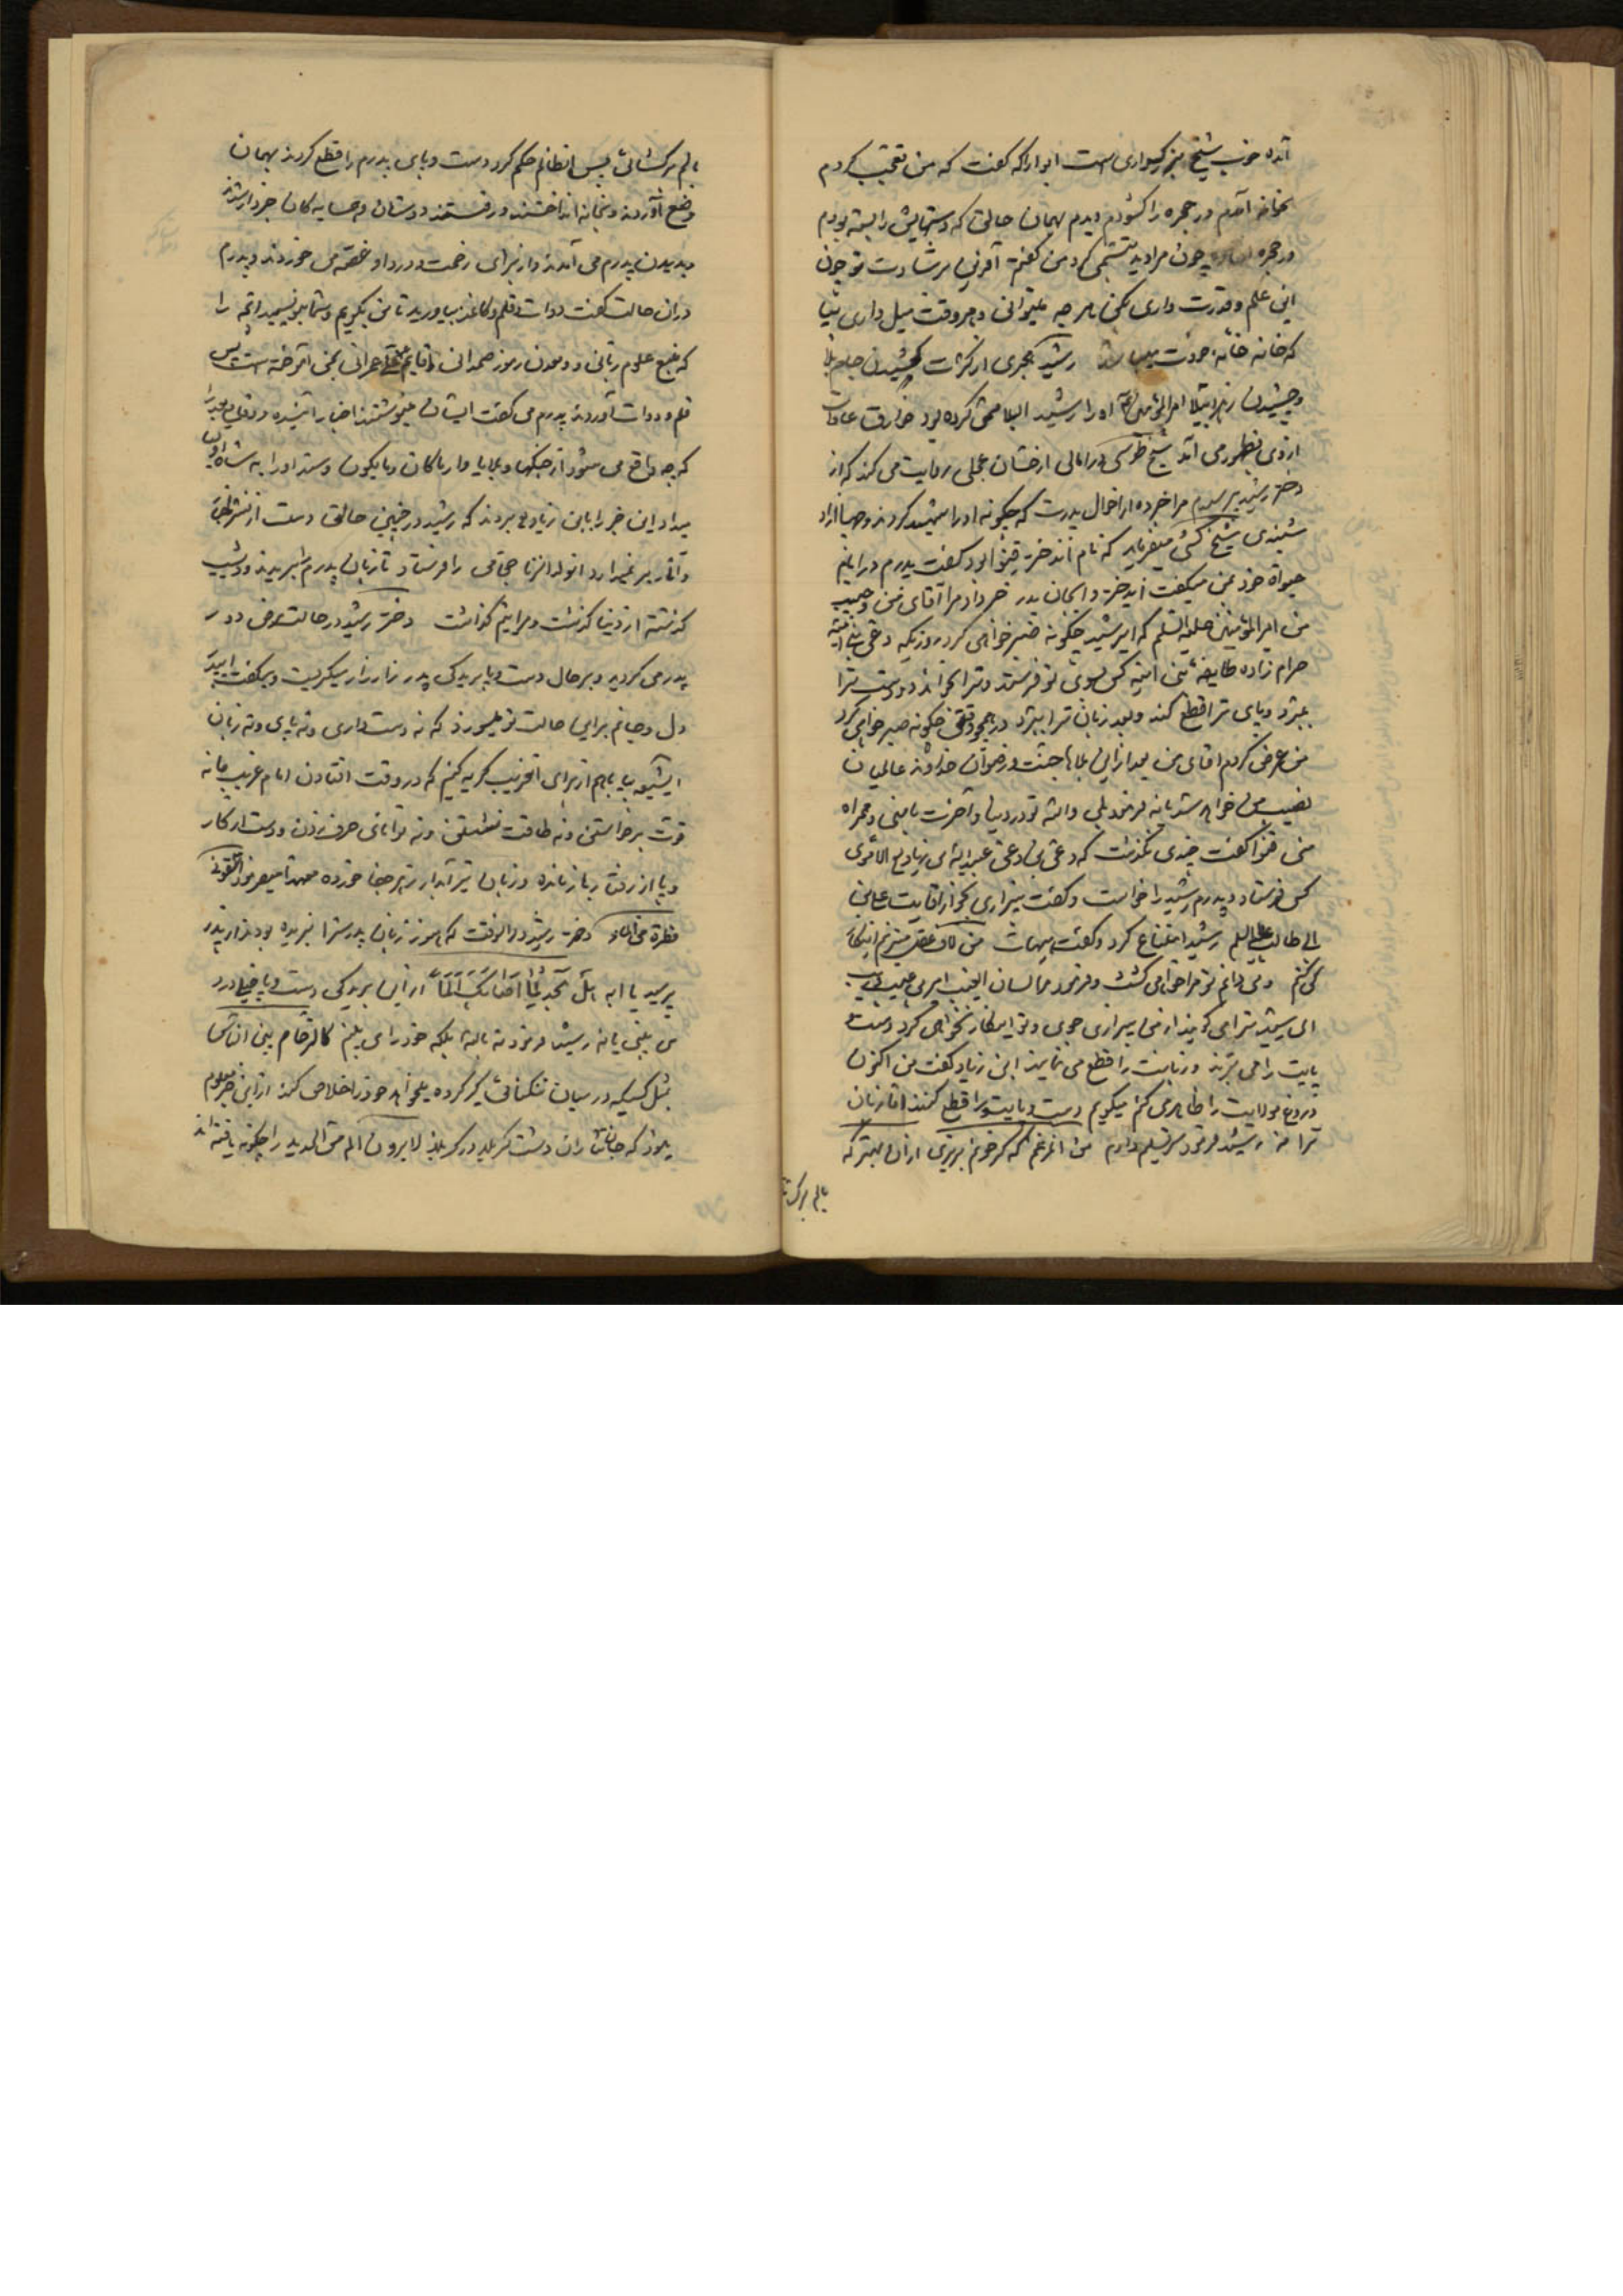 آمده خوب شیخ بزرگواری است ابو اراکه گفت که من تعجب کردم
بخانه آمدم در حجره را کشودم دیدم بهمان حالتی که دستهایش را بسته بودم
در حجره چون مرا دید تبسمی کرد من گفتم آفرین مر شما دست تو چون
این علم و قدرت داری بکن هر چه میتوانی و هر وقت میل داری بیا
که خانه خانه خودت رشید هجری از کثرت کشیدن جام بلا
و چشیدن زهر ابتلا امیرالمؤمنین او را رشید البلایا مسمی کرده بود خوارق عادات
از وی بظهور می آمد شیخ طوسی در امالی از حسان عجلی روایت می کند که از
دختر رشید پرسیدم مرا خبر ده از احوال پدرت که چگونه او را شهید کردند و چها از او
شنیدی شیخ کشی میفرماید که نام آندختر قنوا بود گفت پدرم در ایام
حیواة خود بمن میگفت ایدختر و ایجان پدر خبر داد مرا آقای من و حبیب
من امیرالمؤمنین علیه السلم که ای رشید چگونه صبر خواهی کرد روزیکه دعی بنی امیه
حرام زاده طایفه بنی امیه کس بسوی تو فرستد و ترا بخواند و دست ترا
ببرد و پای ترا قطع کند و بعد زبان ترا ببرد در همچو وقتی چگونه صبر خواهی کرد
من عرض کردم اقای من بعد از این بلاها جنت و رضوان خداوند عالمیان
نصیب من خواهد شد یا نه فرمود بلی والله تو در دنیا و آخرت با منی و همراه
منی قنوا گفت چندی نگذشت که دعی بن دعی عبیدالله بن زیاد بن الاموی
کس فرستاد و پدرم رشید را خواست و گفت بیزاری بجو از اقایت علی بن
ابی طالب علیه السلم رشید امتناع کرد و گفت هیهات من
می کنم و می دانم تو مرا خواهی کشت و فرمود مرا لسان الغیب امیر
ای رشید ترا می گویند از من بیزاری جوی و تو اینکار نخواهی کرد دست و
پایت را می برند و زبانت را قطع می نمایند ابن زیاد گفت من اکنون
دروغ مولایت را ظاهر می کنم میگویم دست و پایت را قطع کنند اما زبان
ترا نه رشید فرمود سر تسلیم دارم من اگر خونم بریزی از آن بهتر که
بالم برکشانی
بالم برکشانی پس انظالم حکم کرد دست و پای پدرم را قطع کردند بهمان
وضع آوردند و بخانه انداختند و رفتند دوستان و همسایه کان خبردار شدند
بدیدن پدرم می آمدند و از برای زحمت و درد او غصه می خوردند و پدرم
در ان حالت گفت دوات و قلم و کاغذ بیاورید تا من بگویم و شما بنویسید انچه را
که منبع علوم ربانی و معدن رموز صمدانی اقایم علی عمرانی بمن آموخته است پس
قلم و دوات آوردند پدرم می گفت ایشان مینوشتند اخبار آینده و وقایع بعد را
که چه واقع می شود از جنگها و بلایا و ما کان و ما یکون و سند او را به شاه اولیا
میداد این خبر را بابن زیاد بردند که رشید در چنین حالتی دست از نشر فضایل
و آثار بر نمیدارد انولد الزنا حجامی را فرستاد تا زبان پدرم را ببریدند و شب
گذشته از دنیا گذشت و مرا یتیم گذاشت دختر رشید در حالت مرض دور سر
پدر می گردید و بر حال دست و پا بریدگی پدر زار زار میگریست و میگفت ای پدر
دل و جانم برای حالت تو میسوزد که نه دست داری و نه پای و نه زبان
ایشیعه بیا باهم از برای آنغریب گریه کنیم که در وقت افتادن امام غریب ما نه
قوت برخواستن و نه طاقت نشستن و نه توانائی حرف زدن و دست از کار
و پا از رفتار باز مانده و زبان تیر آبدار زهر جفا خورده معهذا میفرمود اسقونی
قطرة من الماء دختر رشید در آنوقت که هنوز زبان پدرش را نبریده بودند از پدر
پرسید یا ابه هل تجد لما اصابک الماً از این بریدگی دست و پا خیلی درد
می بینی یا نه رشید فرمود نه بالله بلکه خود را می بینم کالزحام بین الناس
مثل کسیکه در میان تنگنائی گیر کرده میخواهد خود را خلاص کند از این خبر معلوم
میشود که جانثاران دشت کربلا در کربلا لا یرون الم مس الحدید را چگونه یافته اند